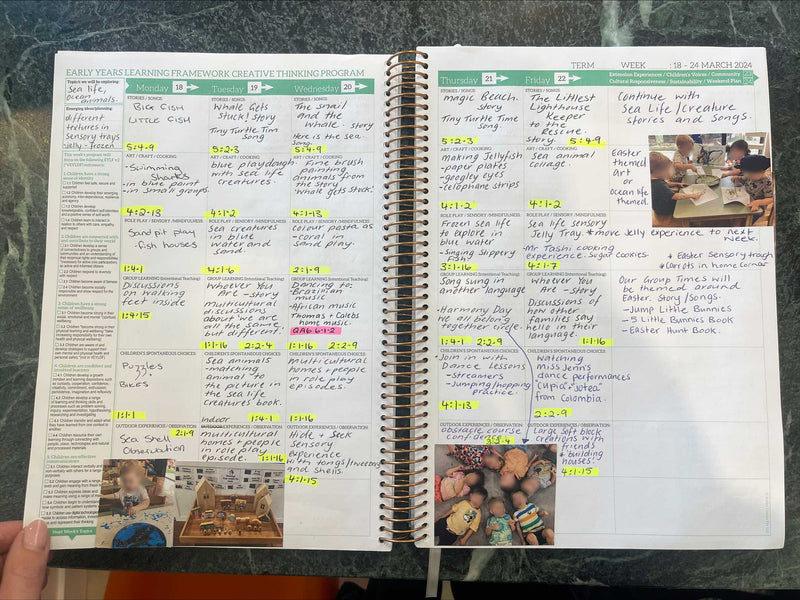 EARLY YEARS LEARNING FRAMEWORK CREATIVE THINKING PROGRAM
Topic/s we will be exploring:
Sea life,
ocean
animals.
Emerging ideas/planning:
different
textures in
sensory trays
jelly - frozen
Monday 18
STORIES / SONGS
BIG FISH
LITTLE FISH
5:4-9
ART / CRAFT / COOKING
-Swimming
Sharks
-in blue paint
-in small groups.
4:2-13
ROLE PLAY / SENSORY / MINDFULNESS
Sandpit play
-fish houses
1:4-1
GROUP LEARNING (Intentional Teaching)
Discussions
on walking
feet inside
1:4-15
CHILDREN'S SPONTANEOUS CHOICES
Puzzles
Bikes
1:1-1
OUTDOOR EXPERIENCES / OBSERVATION
2:1-9
Sea Shell
Observation
Tuesday 19
STORIES / SONGS
Whale Gets
Stuck! Story
Tiny Turtle Tim
Song
5:2-3
ART / CRAFT / COOKING
blue playdough
with sea life
creatures.
4:1-2
ROLE PLAY / SENSORY / MINDFULNESS
Sea creatures
in blue
water and
sand.
4:1-6
GROUP LEARNING (Intentional Teaching)
Whoever You
Are - Story
multicultural
discussions
about 'we are
all the same,
but different'.
1:1-16 2:2-4
CHILDREN'S SPONTANEOUS CHOICES
Sea animals
-matching
animal to
the picture in
the sea life
creatures book.
Indoor 1:4-1
OUTDOOR EXPERIENCES / OBSERVATION
multicultural
homes + people
in role play
episode. 1:1-16
Wednesday 20
STORIES / SONGS
The Snail
and the
Whale. - story
Here is the Sea
Song.
5:4-9
ART / CRAFT / COOKING
Fine brush
painting
animals from
the story
'Whale gets stuck'.
4:1-13
ROLE PLAY / SENSORY / MINDFULNESS
colour pasta as
-coral in
sand play.
2:1-9
GROUP LEARNING (Intentional Teaching)
Dancing to:
-Brazilian
music
-African music
Thomas + Calebs
home music.
QA6 6.1.2
1:1-16 2:2-9
CHILDREN'S SPONTANEOUS CHOICES
multi-cultural
homes + people
in role play
episodes.
1:1-16
OUTDOOR EXPERIENCES / OBSERVATION
Hide + Seek
Sensory
experience
with tongs/tweezers
and shells.
4:1-15
Next Week's Topics
TERM WEEK : 18 - 24 MARCH 2024
Thursday 21
STORIES / SONGS
Magic Beach.
story
Tiny Turtle Time
song.
5:2-3
ART / CRAFT / COOKING
Making Jellyfish
-paper plates
-googley eyes
-celophane strips
4:1-2
ROLE PLAY / SENSORY / MINDFULNESS
Frozen sea life
to explore in
blue water
-Singing Slippery
Fish'
3:1-16
GROUP LEARNING (Intentional Teaching)
Song sung in
another language
-Harmony Day
we all belong
together circle.
1:4-1 2:2-9
CHILDREN'S SPONTANEOUS CHOICES
-Join in with
Dance lessons
-streamers
-Jumping/hopping
practice.
4:1-13
OUTDOOR EXPERIENCES / OBSERVATION
obstacle course
confidence
3:3-4
Friday 22
STORIES / SONGS
The Littlest
Lighthouse
Keeper
to the
Rescue.
story. 5:4-9
ART / CRAFT / COOKING
Sea animal
collage.
4:1-2
ROLE PLAY / SENSORY / MINDFULNESS
Sea life sensory
Jelly Tray.
-Mr Tashi cooking
experience. Sugar cookies
4:1-7
GROUP LEARNING (Intentional Teaching)
Whoever You
Are - Story
Discussions of
how other
families say
hello in their
language.
1:1-16
CHILDREN'S SPONTANEOUS CHOICES
Watching
miss Jenn's
dance performances
"Cupia + Jotea"
from Colombia.
2:2-9
OUTDOOR EXPERIENCES / OBSERVATION
Large soft block
creations with
friends
* building
houses.
4:1-15
Extension Experiences / Children's Voices / Community
Cultural Responsiveness / Sustainability / Weekend Plan
Continue with
Sea Life/Creature
Stories and Songs.
Easter
themed
art
or
ocean life
themed.
* move jelly experience to next
week.
* Easter Sensory trough
* Carrots in home corner
Our Group Times will
be themed around
Easter. Story/Songs.
-Jump Little Bunnies
-5 Little Bunnies Book
-Easter Hunt Book.